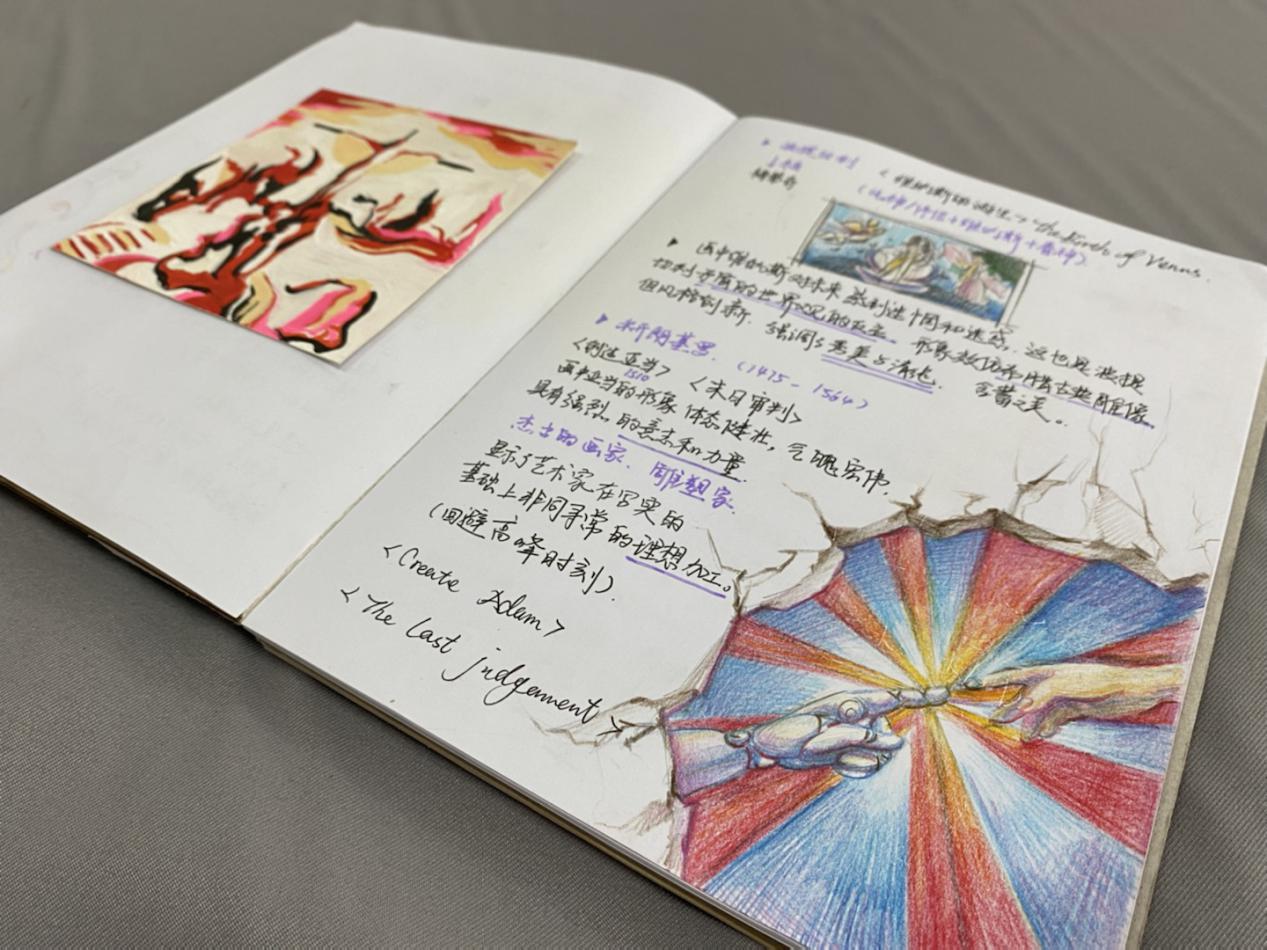 ▸ 波提切利 <维纳斯的诞生> - the birth of Venus.
画中维纳斯对未来 感到迷惘和迷惑. 这也是波提
切利矛盾的世界观的反应. 形象效仿希腊古典雕像
但风格创新. 强调了秀美与清纯. 含蓄之美。
▸ 米开朗基罗. (1475 - 1564)
<创造亚当> <末日审判>
1510
画中亚当的形象 体态健壮, 气魄宏伟,
具有强烈 的意志和力量.
杰出的画家、雕塑家.
显示了艺术家在写实的
基础上非同寻常的理想加工。
(回避高峰时刻).
<Create Adam>
<The Last judgement>